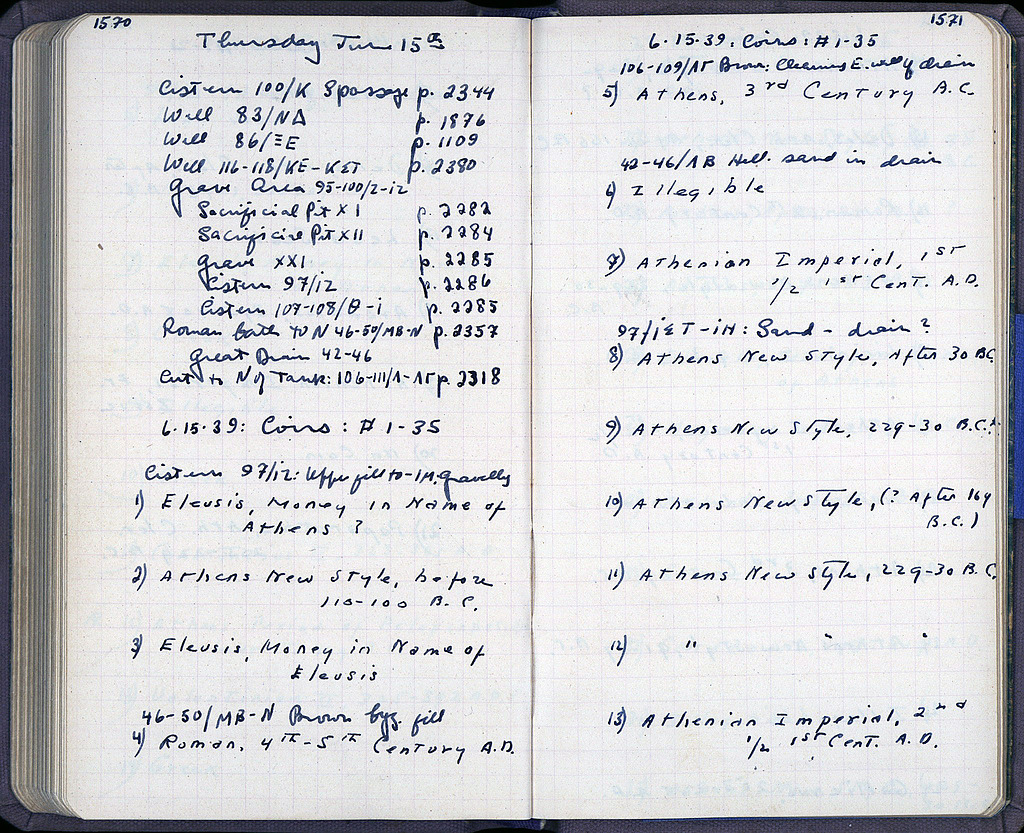 1570
Thursday June 15th
Cistern 100/K S passage p. 2344
Well 83/ΝΔ p. 1876
Well 86/ΞΕ p. 1109
Well 116-118/ΚΕ-ΚΣΤ p. 2380
Grave Area 95-100/Z-12
Sacrificial Pit XI p. 2282
Sacrificial Pit XII p. 2284
Grave XXI p. 2285
Cistern 97/12 p. 2286
Cistern 107-108/Θ-i p. 2285
Roman bath to N 46-50/MB-N p. 2357
Great Drain 42-46
Cut to N of Tank: 106-111/Λ-ΛΓ p. 2318
6.15.39: Coins: # 1-35
Cistern 97/12: Upper fill to -1M. gravelly
1) Eleusis, Money in Name of
Athens?
2) Athens New Style, before
110-100 B.C.
3) Eleusis, Money in Name of
Eleusis
46-50/MB-N Brown byz. fill
4) Roman, 4th-5th Century A.D.
1571
6.15.39: Coins: # 1-35
106-109/ΛΓ Brown: Cleaning E. wall of drain
5) Athens, 3rd Century A.C.
42-46/ΛΒ Hell. sand in drain
6) Illegible
7) Athenian Imperial, 1st
1/2 1st Cent. A.D.
97/iΣΤ-iH: Sand - drain?
8) Athens New Style, After 30 BC.
9) Athens New Style, 229-30 B.C.
10) Athens New Style, (? After 164
B.C.)
11) Athens New Style, 229-30 B.C.
12) " " "
13) Athenian Imperial, 2nd
1/2 1st Cent. A.D.